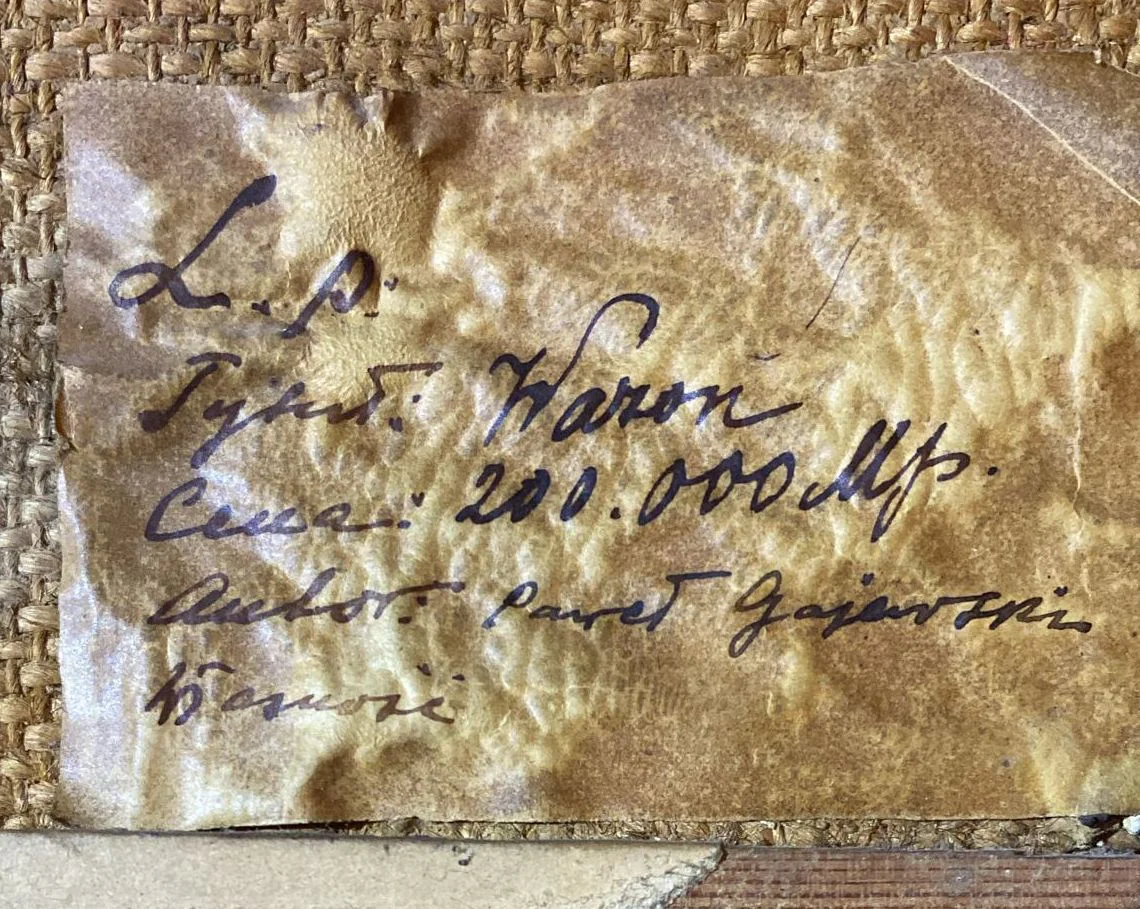 L. p.
Tytuł: Wazon
Cena: 200.000 Mp.
Autor: Paweł Gajewski
Własność